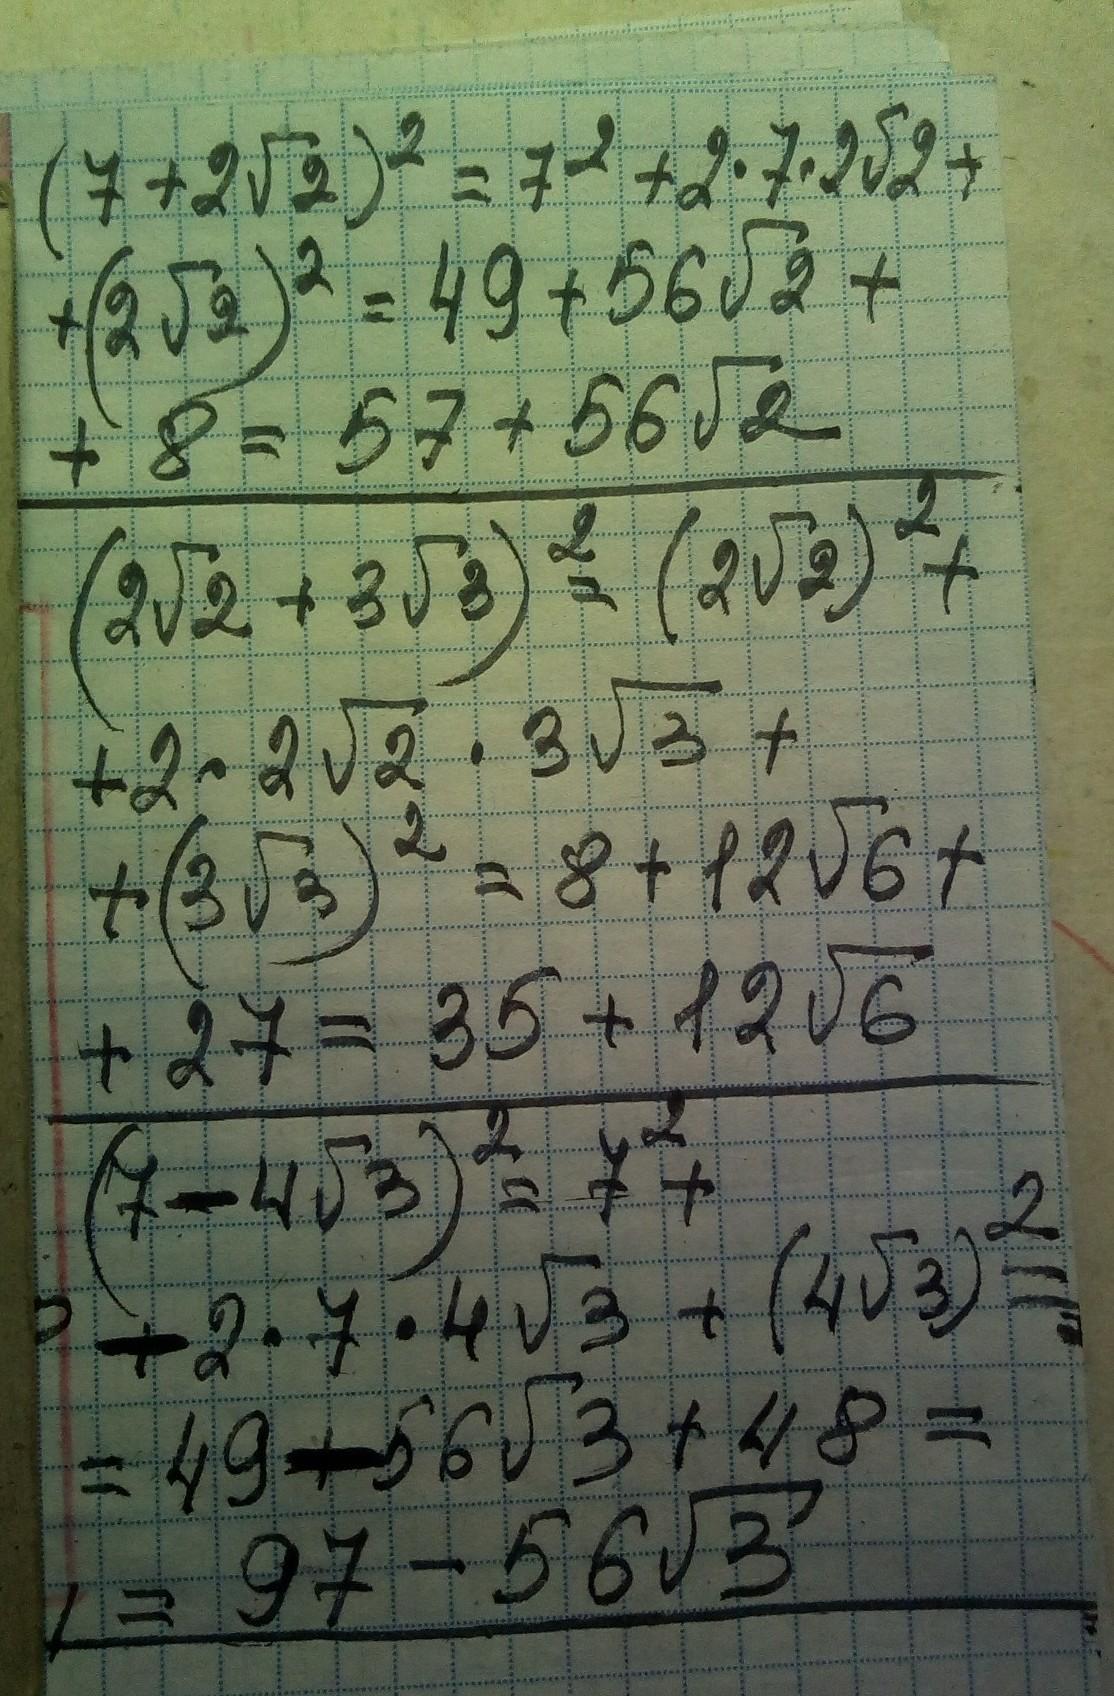 (7+2√2)² = 7² +2·7·2√2+
+(2√2)² = 49+56√2 +
+ 8 = 57+56√2
(2√2 + 3√3)² = (2√2)² +
+2·2√2 · 3√3 +
+(3√3)² = 8 + 12√6 +
+ 27 = 35 + 12√6
(7-4√3)² = 7² +
-2·7·4√3 + (4√3)² =
= 49-56√3 + 48 =
= 97 - 56√3